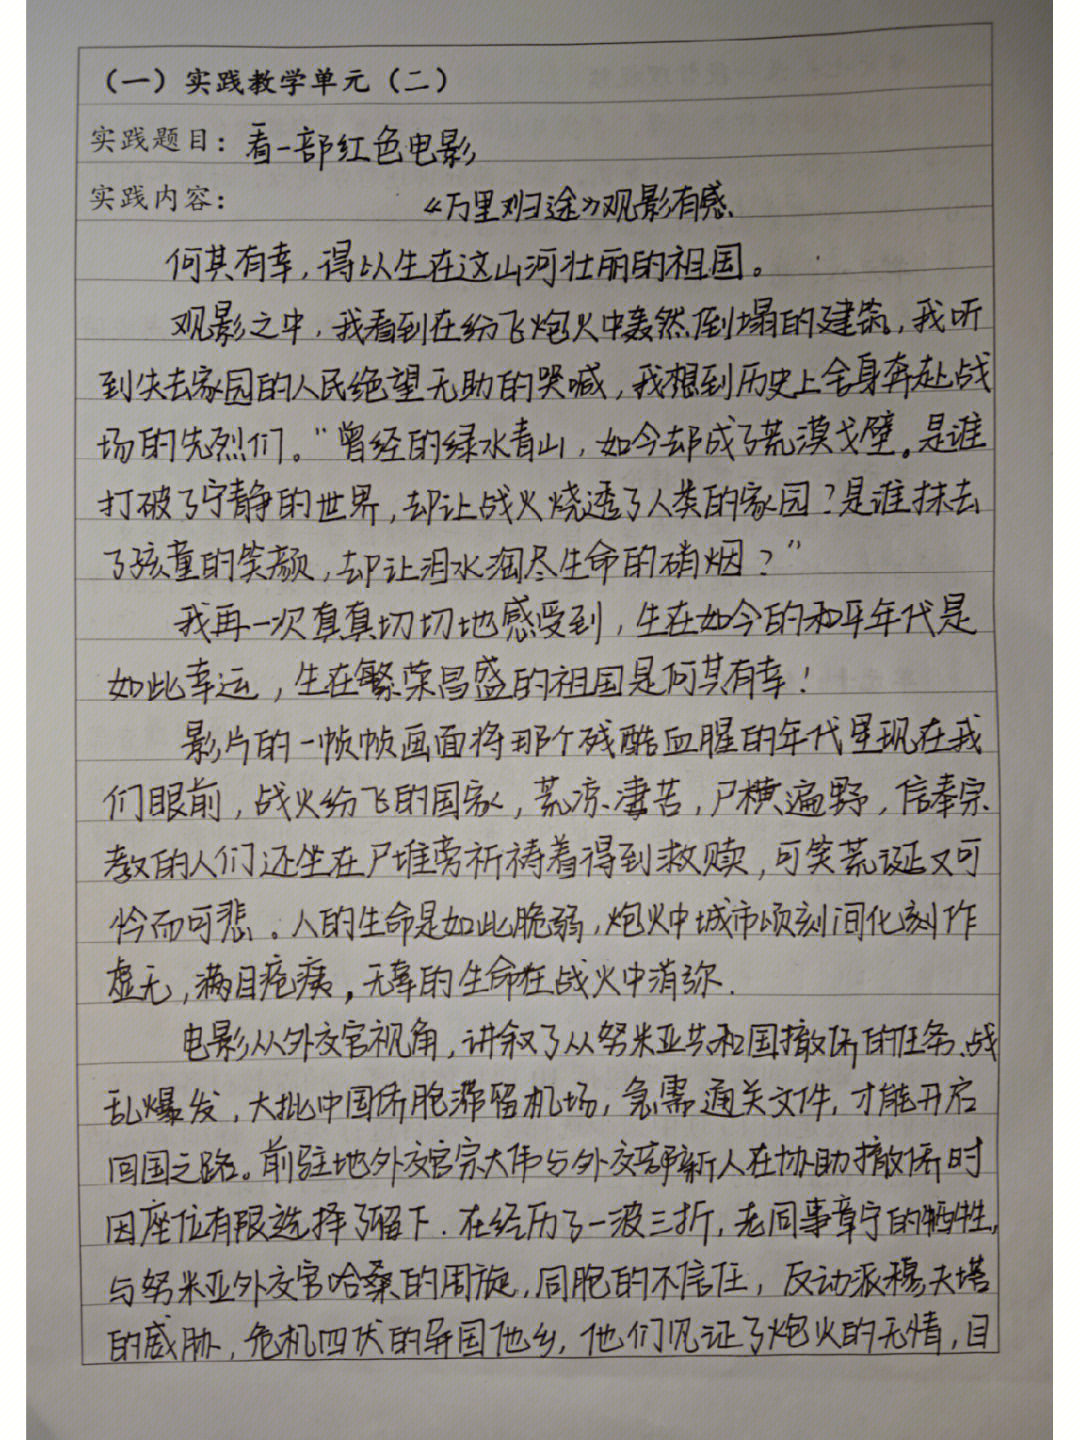 （一）实践教学单元（二）
实践题目：看一部红色电影
实践内容：
《万里归途》观影有感.
何其有幸，得以生在这山河壮丽的祖国。
观影之中，我看到在纷飞炮火中轰然倒塌的建筑，我听
到失去家园的人民绝望无助的哭喊，我想到历史上舍身奔赴战
场的先烈们。“曾经的绿水青山，如今却成了荒漠戈壁。是谁
打破了宁静的世界，却让战火烧透了人类的家园？是谁抹去
了孩童的笑颜，却让泪水淘尽生命的硝烟？”
我再一次真真切切地感受到，生在如今的和平年代是
如此幸运，生在繁荣昌盛的祖国是何其有幸！
影片的一帧帧画面将那个残酷血腥的年代呈现在我
们眼前，战火纷飞的国家，荒凉凄苦，尸横遍野，信奉宗
教的人们还坐在尸堆旁祈祷着得到救赎，可笑荒诞又可
怜而可悲。人的生命是如此脆弱，炮火中城市顷刻间化刻作
虚无，满目疮痍，无辜的生命在战火中消弥.
电影从外交官视角，讲叙了从努米亚共和国撤侨的任务.战
乱爆发，大批中国侨胞滞留机场，急需通关文件，才能开启
回国之路。前驻地外交官宗大伟与外交部新人在协助撤侨时
因座位有限选择了留下.在经历了一波三折，老同事章宁的牺牲，
与努米亚外交官哈桑的周旋，同胞的不信任，反动派穆夫塔
的威胁，危机四伏的异国他乡，他们见证了炮火的无情，目